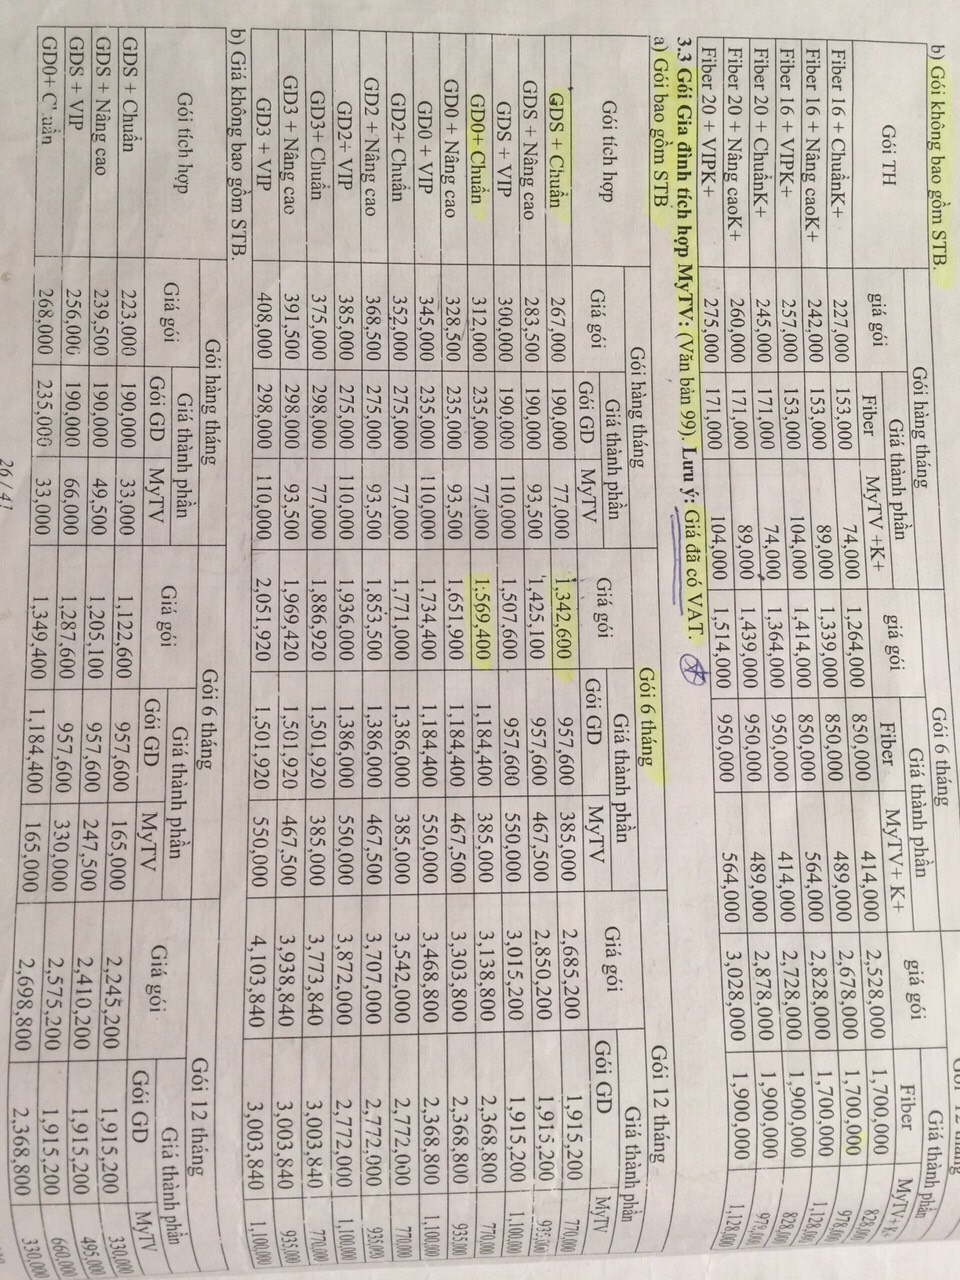 b) Gói không bao gồm STB.
Gói TH Gói hàng tháng Gói 6 tháng
giá gói Giá thành phần giá gói Giá thành phần giá gói Giá thành phần
Fiber MyTV +K+ Fiber MyTV+ K+ Fiber MyTV+K+
Fiber 16 + ChuẩnK+ 227,000 153,000 74,000 1,264,000 850,000 414,000 2,528,000 1,700,000
Fiber 16 + Nâng caoK+ 242,000 153,000 89,000 1,339,000 850,000 489,000 2,678,000 1,700,000
Fiber 16 + VIPK+ 257,000 153,000 104,000 1,414,000 850,000 564,000 2,828,000 1,700,000
Fiber 20 + ChuẩnK+ 245,000 171,000 74,000 1,364,000 950,000 414,000 2,728,000 1,900,000
Fiber 20 + Nâng caoK+ 260,000 171,000 89,000 1,439,000 950,000 489,000 2,878,000 1,900,000
Fiber 20 + VIPK+ 275,000 171,000 104,000 1,514,000 950,000 564,000 3,028,000 1,900,000 1,128,000
3.3 Gói Gia đình tích hợp MyTV: (Văn bản 99). Lưu ý: Giá đã có VAT.
a) Gói bao gồm STB
Gói tích hợp Gói hàng tháng Gói 6 tháng Gói 12 tháng
Giá gói Giá thành phần Giá gói Giá thành phần Giá gói Giá thành phần
Gói GD MyTV Gói GD MyTV Gói GD MyTV
GDS + Chuẩn 267,000 190,000 77,000 1,342,600 957,600 385,000 2,685,200 1,915,200 770,000
GDS + Nâng cao 283,500 190,000 93,500 1,425,100 957,600 467,500 2,850,200 1,915,200 935,000
GDS + VIP 300,000 190,000 110,000 1,507,600 957,600 550,000 3,015,200 1,915,200 1,100,000
GD0+ Chuẩn 312,000 235,000 77,000 1,569,400 1,184,400 385,000 3,138,800 2,368,800 770,000
GD0 + Nâng cao 328,500 235,000 93,500 1,651,900 1,184,400 467,500 3,303,800 2,368,800 935,000
GD0 + VIP 345,000 235,000 110,000 1,734,400 1,184,400 550,000 3,468,800 2,368,800 1,100,000
GD2+ Chuẩn 352,000 275,000 77,000 1,771,000 1,386,000 385,000 3,542,000 2,772,000 770,000
GD2 + Nâng cao 368,500 275,000 93,500 1,853,500 1,386,000 467,500 3,707,000 2,772,000 935,000
GD2+ VIP 385,000 275,000 110,000 1,936,000 1,386,000 550,000 3,872,000 2,772,000 1,100,000
GD3+ Chuẩn 375,000 298,000 77,000 1,886,920 1,501,920 385,000 3,773,840 3,003,840 770,000
GD3 + Nâng cao 391,500 298,000 93,500 1,969,420 1,501,920 467,500 3,938,840 3,003,840 935,000
GD3 + VIP 408,000 298,000 110,000 2,051,920 1,501,920 550,000 4,103,840 3,003,840 1,100,000
b) Giá không bao gồm STB.
Gói tích hợp Gói hàng tháng Gói 6 tháng Gói 12 tháng
Giá gói Giá thành phần Giá gói Giá thành phần Giá gói Giá thành phần
Gói GD MyTV Gói GD MyTV Gói GD MyTV
GDS + Chuẩn 223,000 190,000 33,000 1,122,600 957,600 165,000 2,245,200 1,915,200 330,000
GDS + Nâng cao 239,500 190,000 49,500 1,205,100 957,600 247,500 2,410,200 1,915,200 495,000
GDS + VIP 256,000 190,000 66,000 1,287,600 957,600 330,000 2,575,200 1,915,200 660,000
GD0+ Chuẩn 268,000 235,000 33,000 1,349,400 1,184,400 165,000 2,698,800 2,368,800 330,000
26/41